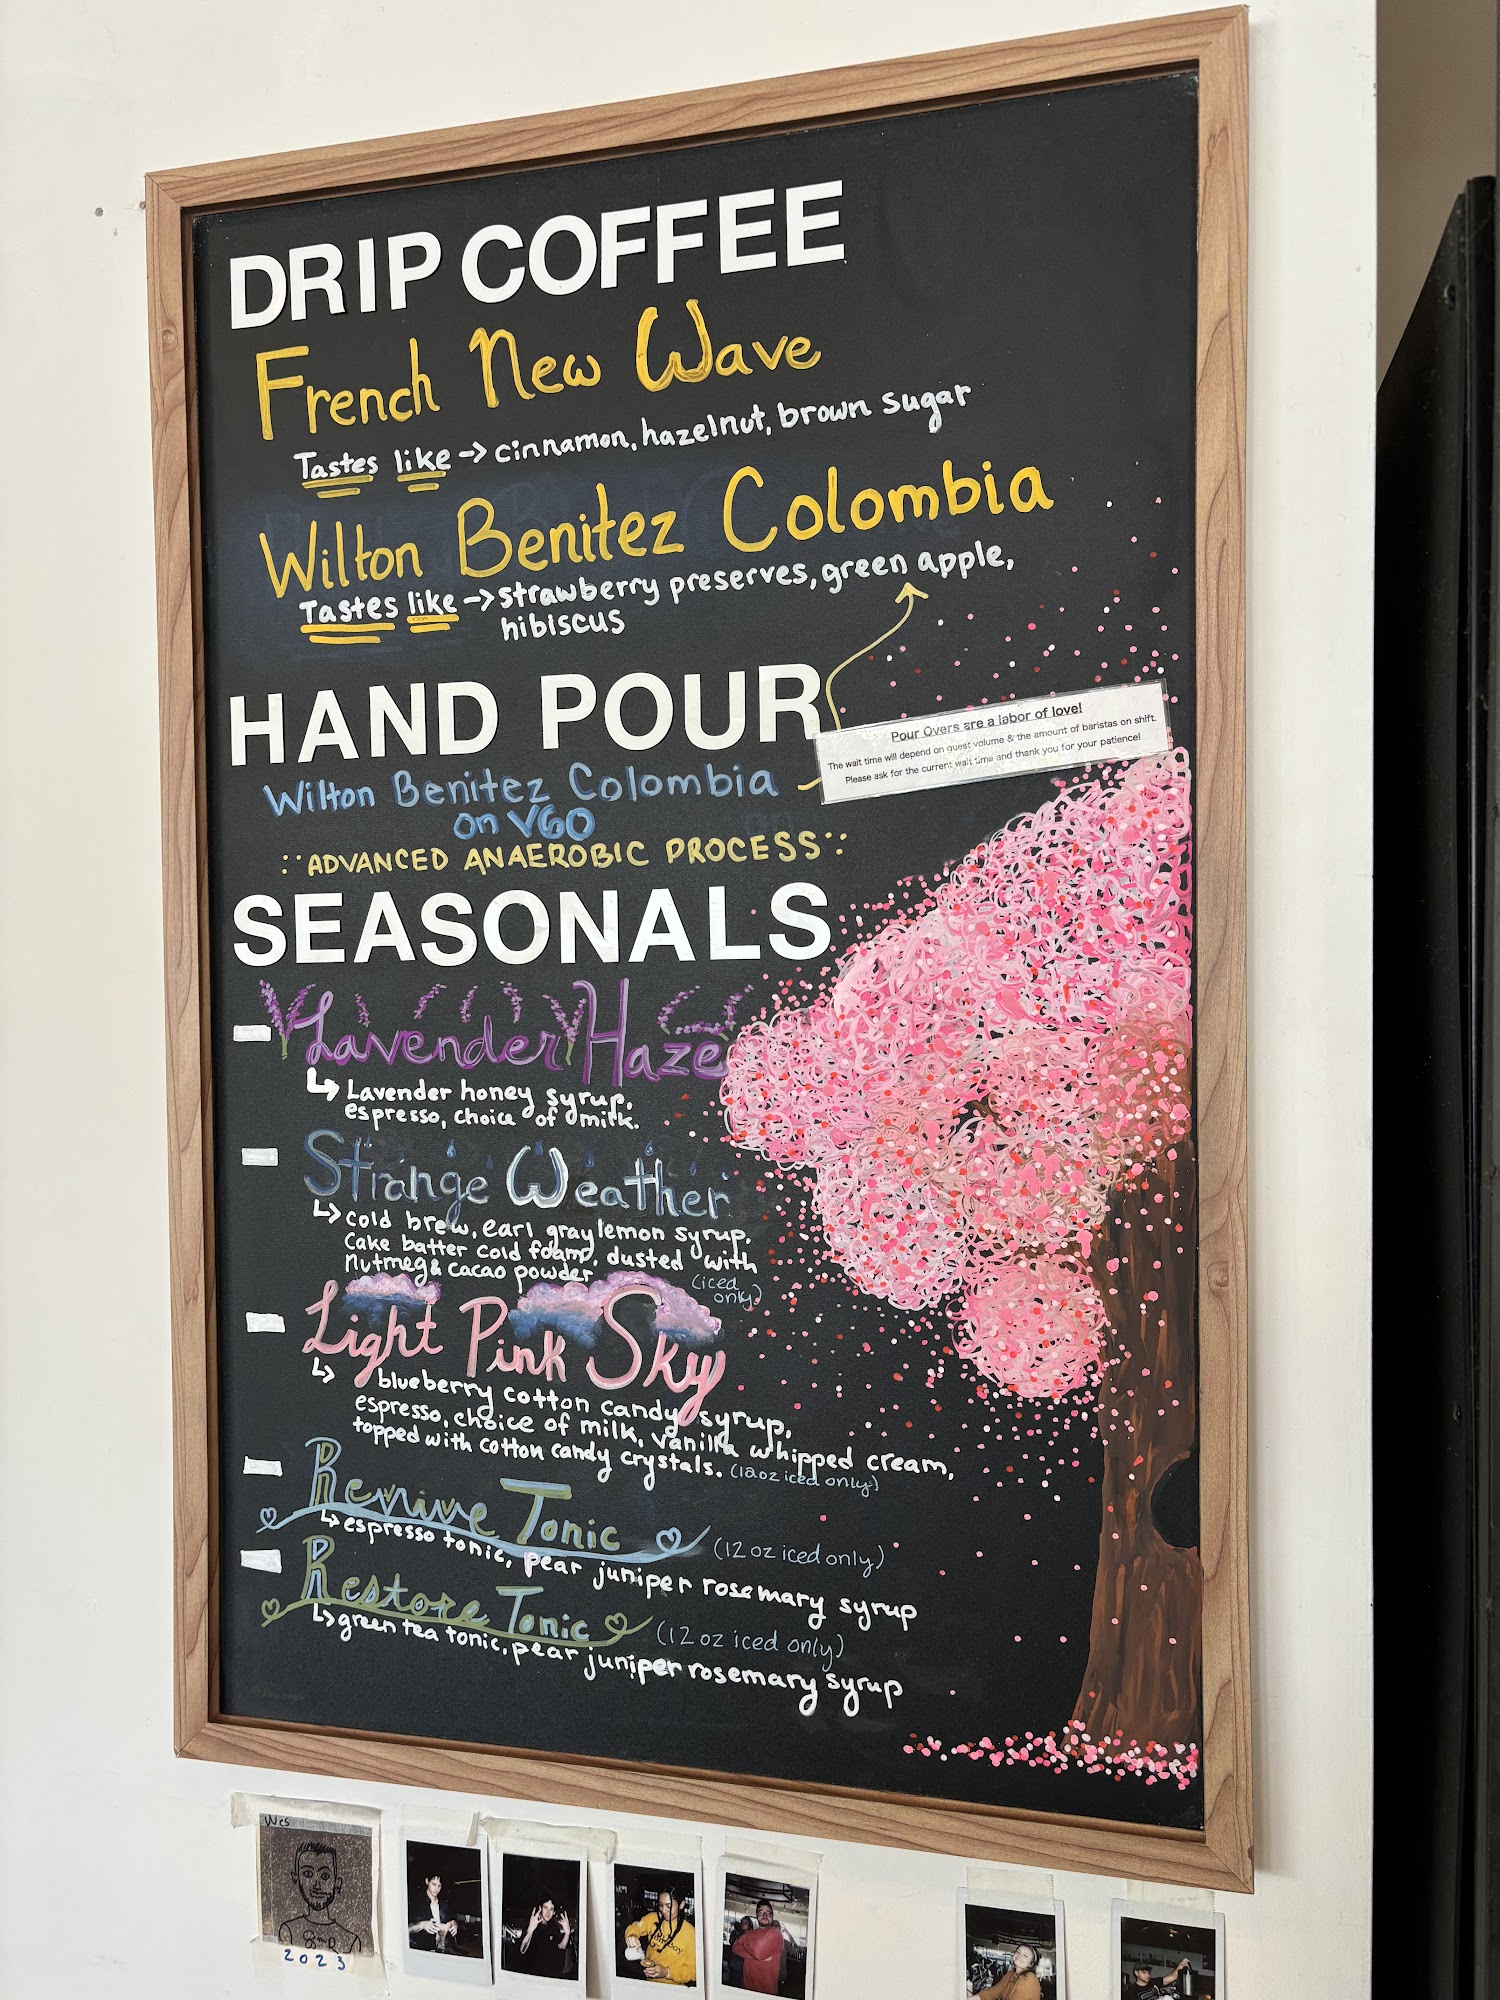 DRIP COFFEE
French New Wave
Tastes like → cinnamon, hazelnut, brown sugar
Wilton Benitez Colombia
Tastes like → strawberry preserves, green apple,
hibiscus
HAND POUR
Pour Overs are a labor of love!
The wait time will depend on guest volume & the amount of baristas on shift.
Please ask for the current wait time and thank you for your patience!
Wilton Benitez Colombia
on V60
::ADVANCED ANAEROBIC PROCESS::
SEASONALS
Lavender Haze
↳ Lavender honey syrup,
espresso, choice of milk.
Strange Weather
↳ cold brew, earl gray lemon syrup,
Cake batter cold foam, dusted with
Nutmeg & cacao powder
(iced
only)
Light Pink Sky
↳ blueberry cotton candy syrup,
espresso, choice of milk, vanilla whipped cream,
topped with cotton candy crystals. (12oz iced only)
Revive Tonic (12 oz iced only)
↳ espresso tonic, pear juniper rosemary syrup
Restore Tonic (12 oz iced only)
↳ green tea tonic, pear juniper rosemary syrup
Wes
2023